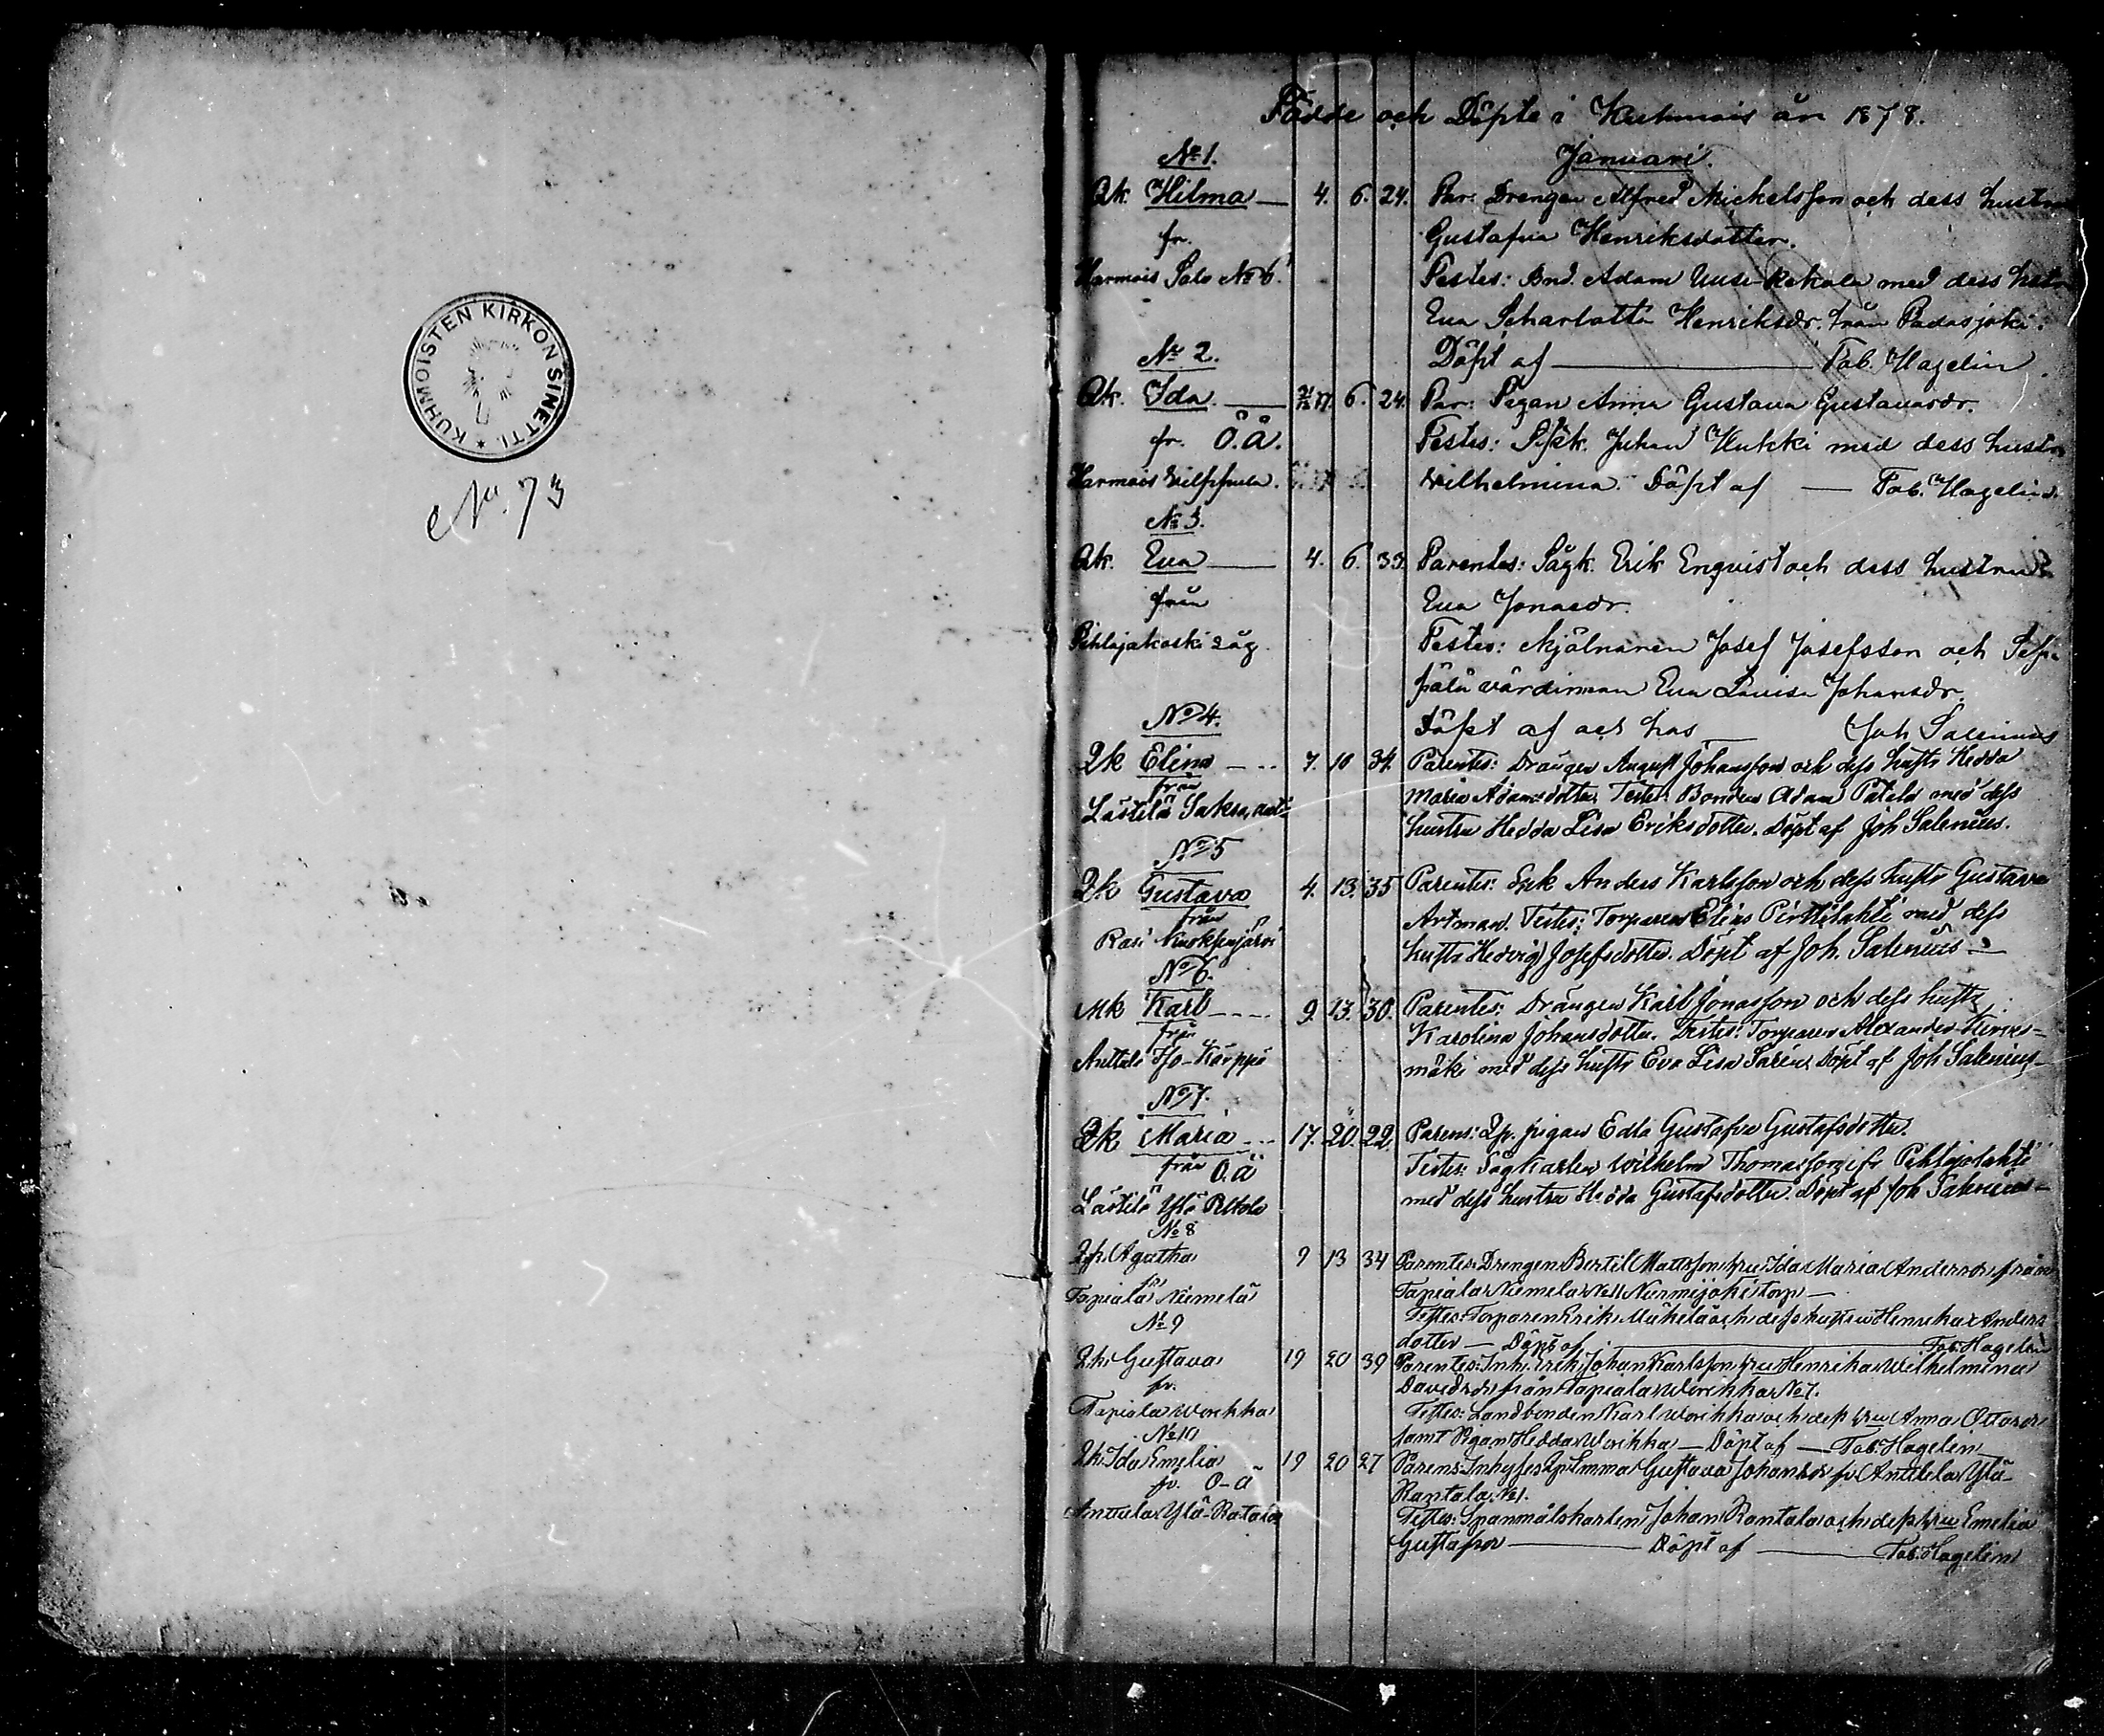 KUHMOISTEN KIRKON SINETTI
No 73
Födde och Döpte i Kuhmois år 1878.
No 1. Januari.
Qk. Hilma 4. 6. 24. Par: Drengen Alfred Mickelsson och dess hustru
fr. Gustafva Henriksdotter.
Harmois Salo No 6. Testes: Bnd. Adam Uusi-Kokala med dess
Eva Scharlotta Henriksdr. från Padasjoki.
No 2. Döpt af Tob. Hagelin
Qk. Ida 77. 6. 24. Par: Pigan Anna Gustava Gustavasdr.
fr. O.Ä. Testes: Juhan Hukki med dess hustru
Harmois Vilppula. Wilhelmina. Döpt af — Tob. Hagelin.
No 3.
Qk. Eva 4. 6. 33. Parentes: Sågk. Erik Enqvist och dess hustru
från Eva Jonasdr.
Pihlajakoski såg. Testes: Mjölnaren Josef Josefsson och
värdinnan Eva Lovisa Johansdr.
No 4. Döpt af och hos Joh Salenius
Qk Elina 7. 10 34. Parentes: Drängen August Johansson och dess hustr Hedda
från Maria Adamsdotter Testes Bonden Adam Patela med dess
Lästilä hustru Hedda Lisa Eriksdotter. Döpt af Joh Salenius.
No 5
Qk Gustava 4. 13. 35 Parentes: Anders Karlsson och dess hustr Gustava
från Artman. Testes: Torparen Elias Pirttilahti med dess
Rasi hustr Hedvig Josefsdotter. Döpt af Joh. Salenius —
No 6.
Mk Karl 9. 13. 30. Parentes: Drängen Karl Jonasson och dess hustr
från Karolina Johansdotter. Testes: Torparen Alexander
Anttila Iso-Karppi mäki med dess hustr Eva Lisa Döpt af Joh Salenius —
No 7.
Qk Maria 17. 20. 22. Parens: Lp. pigan Edla Gustafva Gustafsdotter.
från O.ä Testes: Sågkarlen Wilhelm Thomasson fr Pihlajalahti
Lästilä Ylä med dess hustru Hedda Gustafsdotter. Döpt af Joh Salenius —
No 8
Qk. Agatha 9 13 34 Parentes: Drengen Bertil Mattsson hru Ida Maria Andersdr från
fr Tapiala Niemelä No 11 Nurmijoki torp —
Tapiala Niemelä Testes: Torparen Erik Mäkelä och dess hustru Henrika Anders
No 9 dotter — Döpt af Tob. Hagelin
Qk. Gustava 19 20 39 Parentes: Inh. Erik Johan Karlsson hru Henrika Wilhelmina
fr. Davidsdr från Tapiala Worikka No 7.
Tapiala Worikka Testes: Landbonden Karl Worikka och dess hru Anna Ottosdr
No 10 samt Pigan Hedda Worikka — Döpt af — Tob. Hagelin
Qk. Ida Emelia 19 20 27 Parens: Inhyses Emma Gustava Johansdr fr Anttila Ylä-
fr. O-ä Rantala No 1.
Anttila Ylä-Ratala Testes: Spanmålskarlen Johan Rantala och dess hru Emelia
Gustafsdr Döpt af Tob. Hagelin